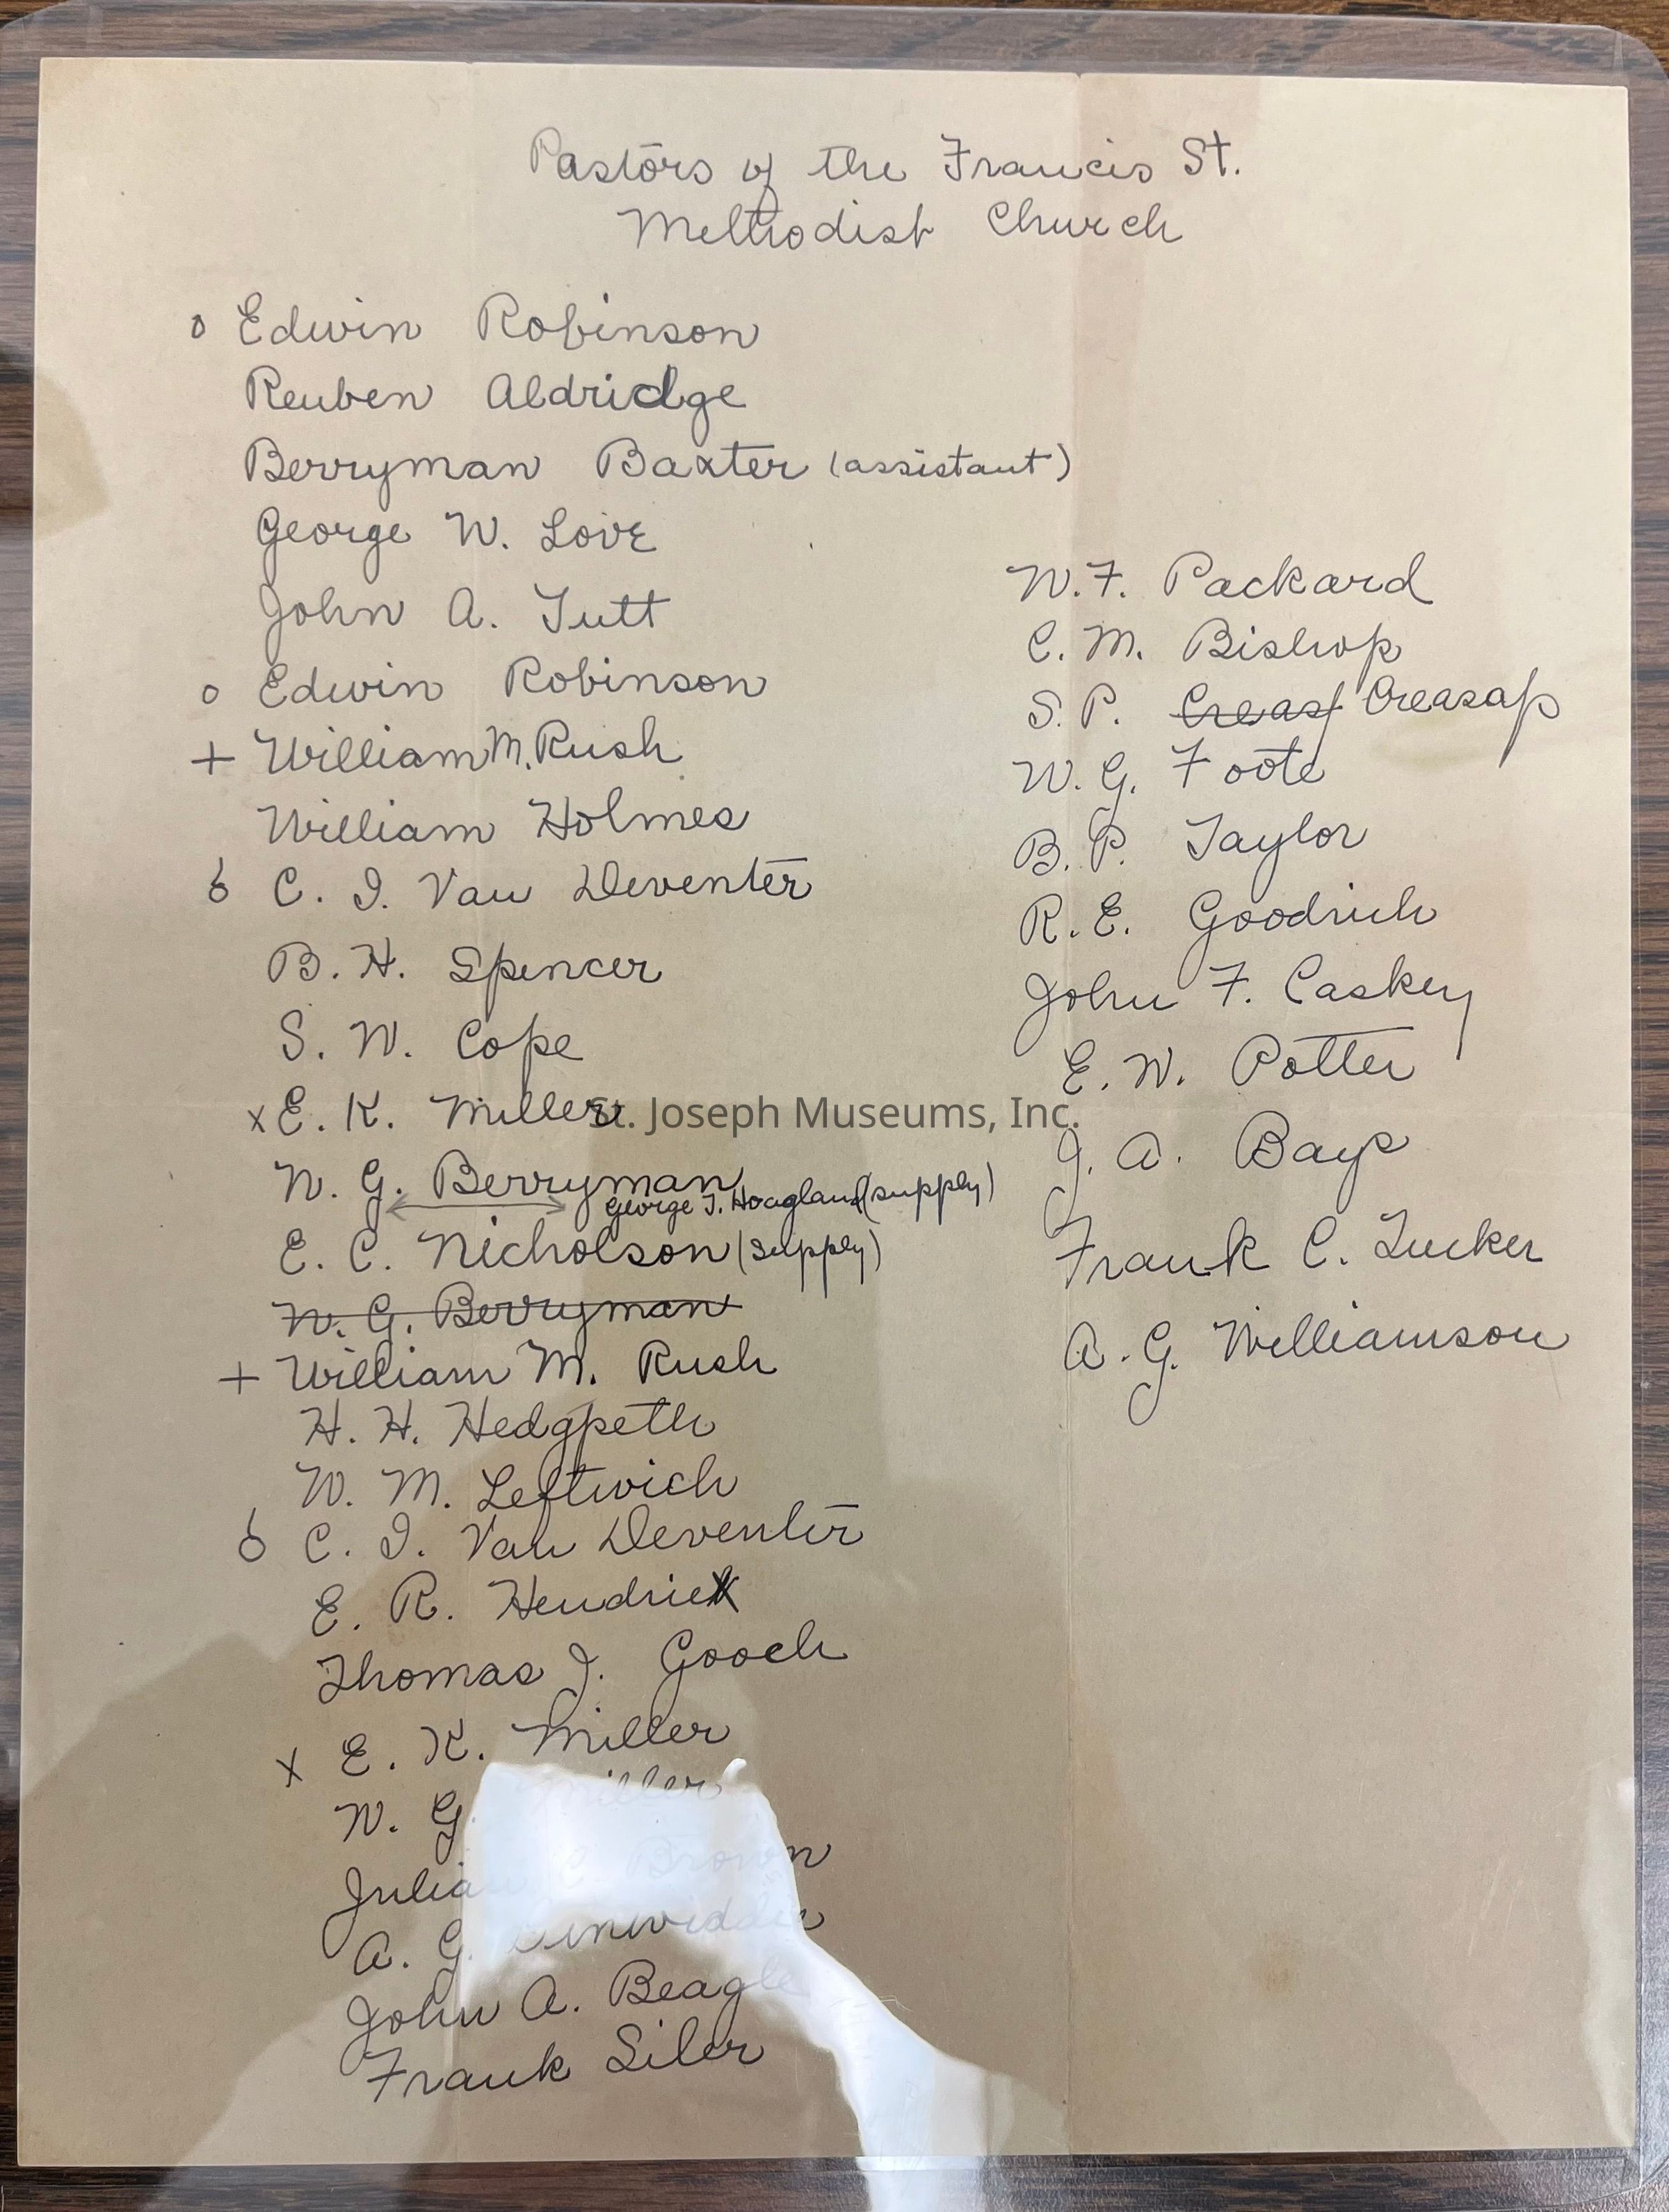 Pastors of the Francis St.
Methodist Church
o Edwin Robinson
Reuben Aldridge
Berryman Baxter (assistant)
George W. Love
John A. Tutt
o Edwin Robinson
+ William M. Rush
William Holmes
ó C. I. Van Deventer
B. H. Spencer
S. W. Cope
x E. K. Miller
St. Joseph Museums, Inc.
W. G. Berryman
George T. Hoagland (supply)
E. C. Nicholson (supply)
W. G. Berryman
+ William M. Rush
H. H. Hedgpeth
W. M. Leftwich
ó C. I. Van Deventer
E. R. Hendrix
Thomas J. Gooch
x E. K. Miller
W. G. Miller
Julian C. Brown
A. G. Dinwiddie
John A. Beagle
Frank Siler
W. F. Packard
C. M. Bishop
S. P. Creasf Creasap
W. G. Foote
B. P. Taylor
R. E. Goodrich
John F. Caskey
E. W. Potter
J. A. Bays
Frank C. Tucker
A. G. Williamson